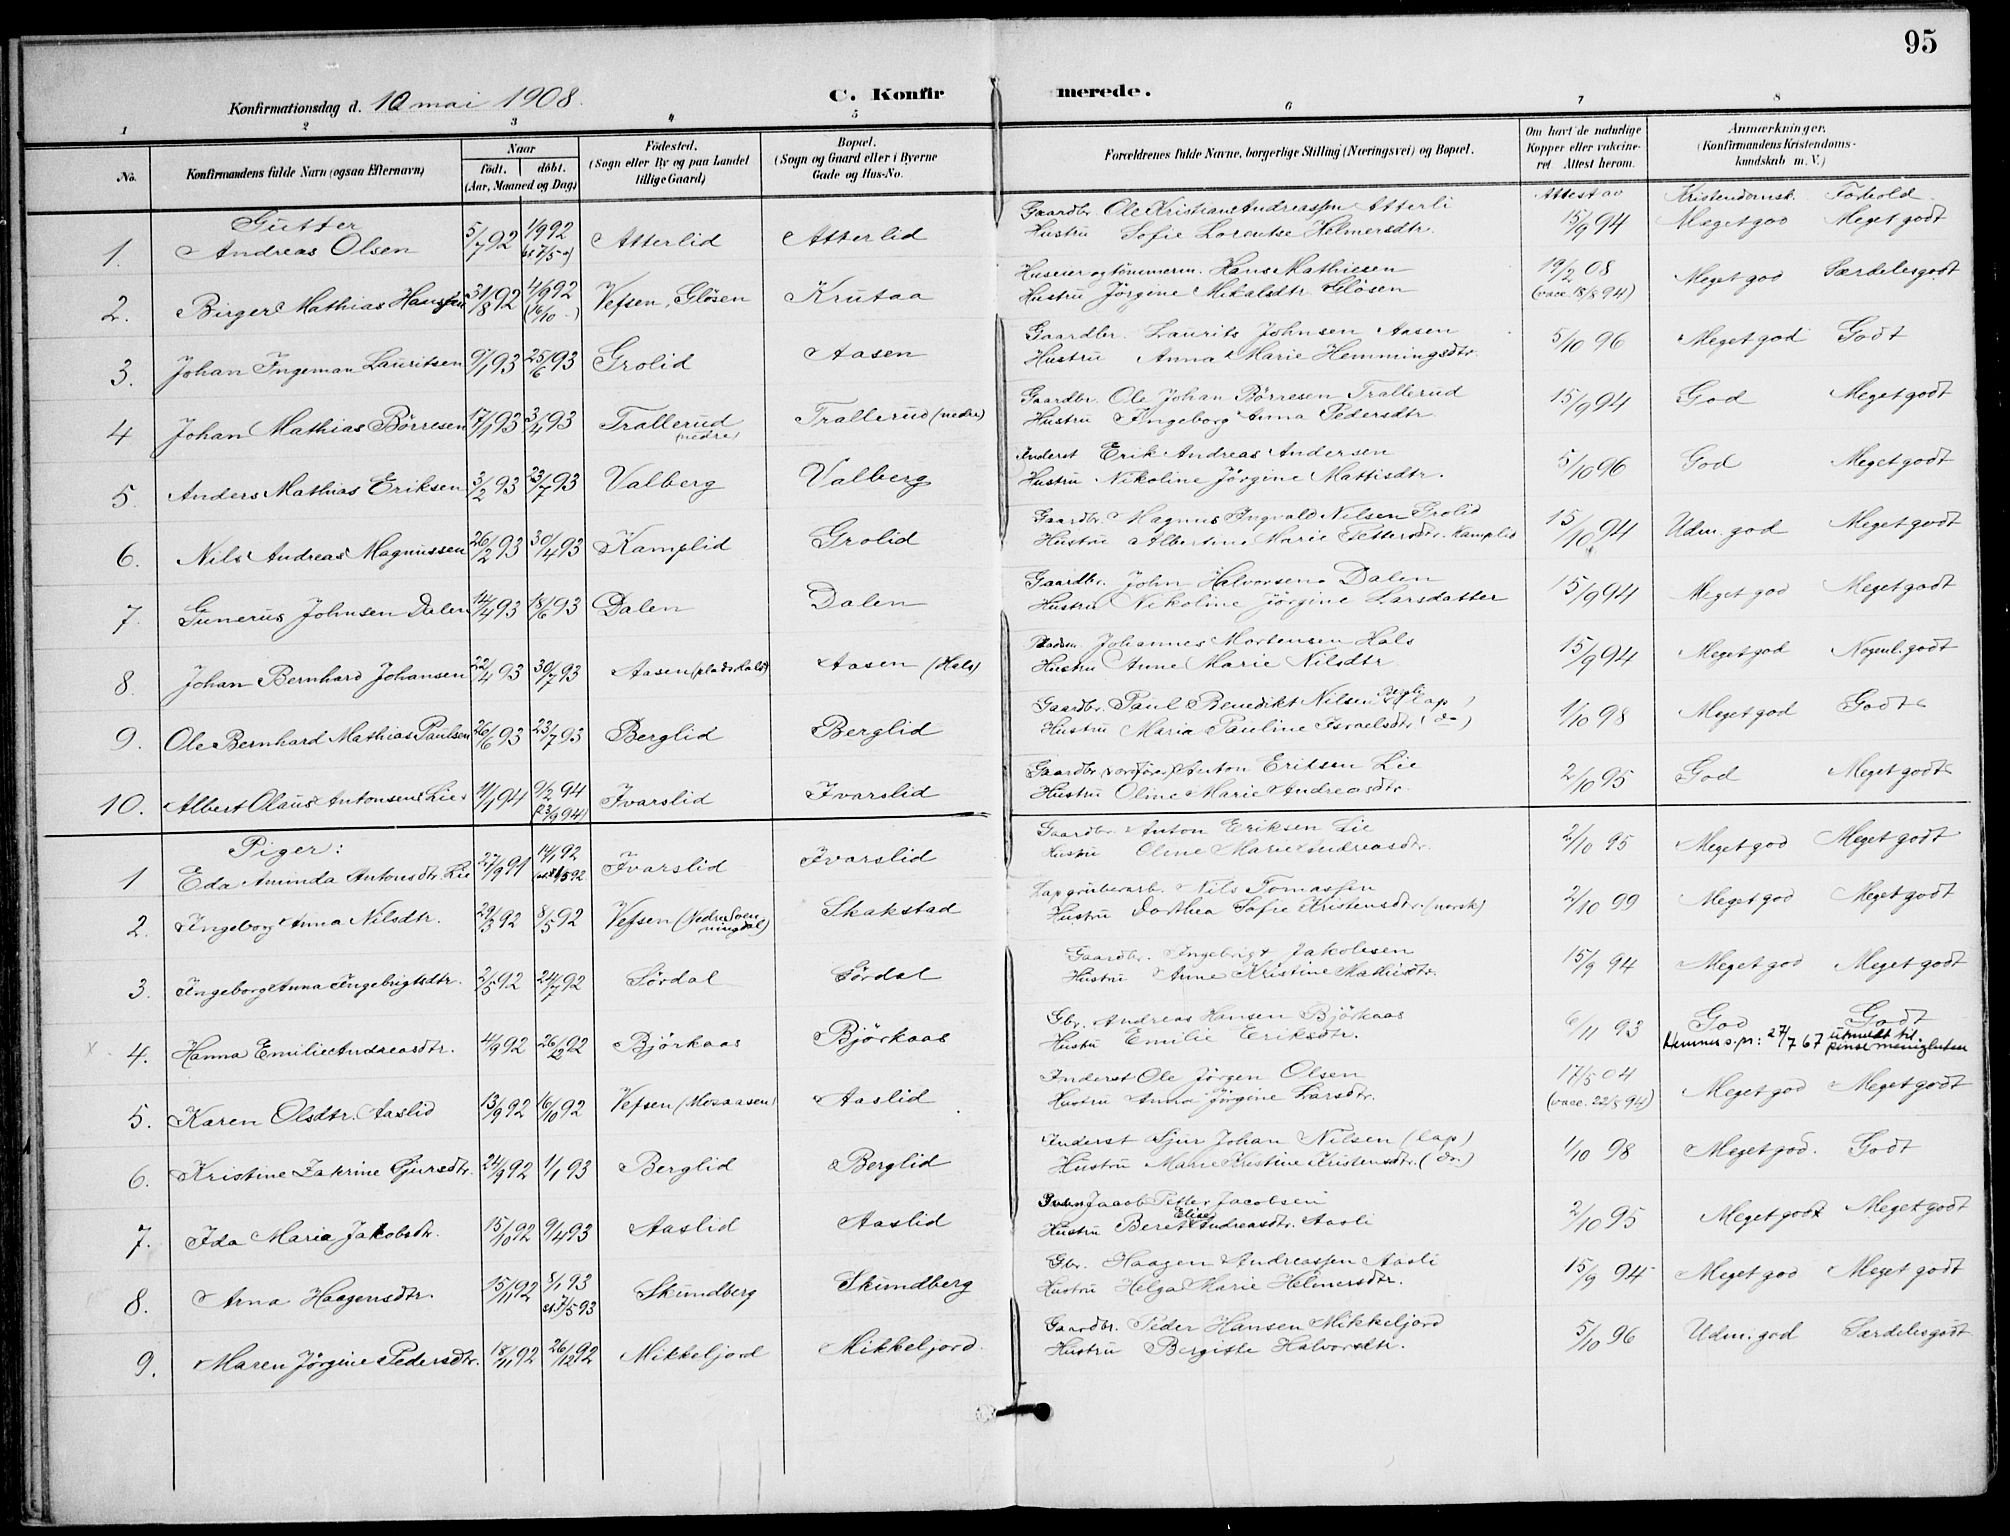 95
Konfirmationsdag d. 10 mai 1908.
C. Konfirmerede.
1 2 3 4 5 6 7 8
No.
Konfirmandens fulde Navn (ogsaa Efternavn)
Naar
födt. döbt.
(Aar, Maaned og Dag)
Födested.
(Sogn eller By og paa Landet
tillige Gaard)
Bopæl.
(Sogn og Gaard eller i Byerne
Gade og Hus-No.
Forældrenes fulde Navne, borgerlige Stilling (Næringsvei) og Bopæl.
Om havt de naturlige
Kopper eller vakcine-
ret. Attest herom.
Anmærkninger.
(Konfirmandens Kristendoms-
kundskab m. V.)
Attest av Kristendomsk. Forhold.
Gutter
1. Andreas Olsen 5/7 92 1/9 92 Atterlid Atterlid Gaardbr. Ole Kristian Andreassen Atterli 15/9 94 Meget god Meget godt
Hustru Sofie Lorentse Helmersdtr.
2. Birger Mathias Hansen 31/8 92 4/9 92 (16/10 -) Vefsen, Glösen Krutaa Huseier og tömmerm. Hans Mathiesen 19/2 08 Meget god Særdeles godt
Hustru Jörgine Mikalsdtr. Glösen (vacc. 18/8 94)
3. Johan Ingeman Lauritsen 9/1 93 25/6 93 Grolid Aasen Gaardbr. Laurits Johnsen Aasen 5/10 96 Meget god Godt
Hustru Anna Marie Hemmingsdtr.
4 Johan Mathias Börresen 17/1 93 3/4 93 Trallerud (nedre) Trallerud (nedre) Gaardbr. Ole Johan Börresen Trallerud 15/9 94 God Meget godt
Hustru Ingeborg Anna Pedersdtr.
5 Anders Mathias Eriksen 3/2 93 23/7 93 Valberg Valberg Inderst Erik Andreas Andersen 5/10 96 God Meget godt
Hustru Nikoline Jörgine Mattisdtr.
6. Nils Andreas Magnussen 26/2 93 30/4 93 Kamplid Grolid Gaardbr. Magnus Ingvald Nilsen Grolid 15/10 94 Udm. god Meget godt
Hustru Albertine Marie Pettersdtr. Kamplid
7. Gunerius Johnsen Dalen 14/4 93 18/6 93 Dalen Dalen Gaardbr. John Halvorsen Dalen 15/9 94 Meget god Meget godt
Hustru Nikoline Jörgine Larsdatter
8. Johan Bernhard Johansen 22/4 93 30/7 93 Aasen (plads Hals) Aasen (Hals) Johannes Mortensen Hals 15/9 94 Meget god Nogenl. godt
Hustru Anne Marie Nilsdtr.
9. Ole Bernhard Mathias Paulsen 26/6 93 23/7 93 Berglid Berglid Gaardbr. Paul Benedikt Nilsen (lap) 1/10 98 Meget god Godt
Hustru Maria Pauline Israelsdtr. (do)
10. Albert Olaus Antonsen Lie 11/1 94 9/2 94 Ivarslid Ivarslid Gaardbr. (ordförer) Anton Eriksen Lie 2/10 95 God Meget godt
Hustru Oline Marie Andreasdtr.
Piger:
1 Eda Aminda Antonsdtr. Lie 27/9 91 14/1 92 Ivarslid Ivarslid Gaardbr. Anton Eriksen Lie 2/10 95 Meget god Meget godt
Hustru Oline Marie Andreasdtr.
2. Ingeborg Anna Nilsdtr. 29/3 92 8/5 92 Vefsen (Nedre Svenningdal) Skakstad Lap gruberarb. Nils Tomassen 2/10 99 Meget god Meget godt
Hustru Dorthea Sofie Kristensdtr. (norsk)
3. Ingeborg Anna Ingebrigtsdtr. 2/5 92 24/7 92 Sördal Sördal Gaardbr. Ingebrigt Jakobsen 15/9 94 Meget god Meget godt
Hustru Anne Kristine Mathisdtr.
x 4. Hanna Emilie Andreasdtr. 4/9 92 26/12 92 Björkaas Björkaas Gbr. Andreas Hansen Björkaas 6/11 93 God Godt
Hustru Emilie Eriksdtr. Hemnes s.pr: 27/7 67 utmeldt til pinsemenigheten
5. Karen Olsdtr. Aaslid 13/9 92 16/10 92 Vefsen (Mosaasen) Aaslid Inderst Ole Jörgen Olsen 17/5 04 Meget god Meget godt
Hustru Anna Jörgine Larsdtr. (vacc. 22/8 94)
6. Kristine Katrine Sjursdtr. 24/9 92 1/1 93 Berglid Berglid Inderst Sjur Johan Nilsen (lap) 1/10 98 Meget god. Godt
Hustru Marie Kristine Kristensdtr. (do.)
7. Ida Maria Jakobsdtr. 15/10 92 9/4 93 Aaslid Aaslid Jacob Petter Jacobsen 2/10 95 Meget godt Meget godt
Hustru Beret Elise Andreasdtr. Aasli
8. Arna Haagensdtr. 15/11 92 8/1 93 st. 7/5 93 Skundberg Skundberg Gbr. Haagen Andreassen Aasli 15/9 94 Meget god Meget godt
Hustru Helga Marie Helmersdtr.
9. Maren Jörgine Pedersdtr. 18/11 92 26/12 92 Mikkeljord Mikkeljord. Gaardbr. Peder Hansen Mikkeljord 5/10 96 Udm. god Særdeles godt
Hustru Bergitte Halvorsdtr.